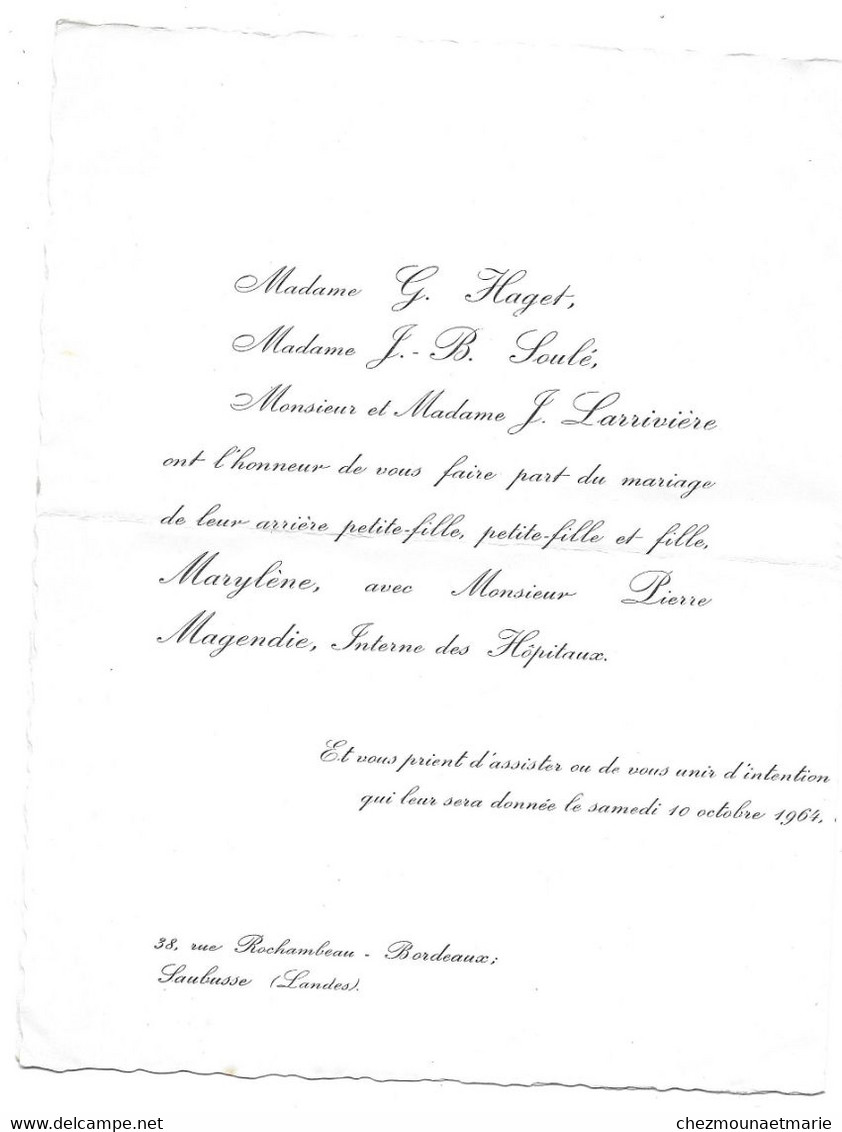 Madame G. Haget,
Madame J.-B. Soulé,
Monsieur et Madame J. Larrivière
ont l'honneur de vous faire part du mariage
de leur arrière petite-fille, petite-fille et fille,
Marylène, avec Monsieur Pierre
Magendie, Interne des Hôpitaux.
Et vous prient d'assister ou de vous unir d'intention
qui leur sera donnée le samedi 10 octobre 1964,
38, rue Rochambeau - Bordeaux;
Saubusse (Landes).
www.delcampe.net
chezmounaetmarie